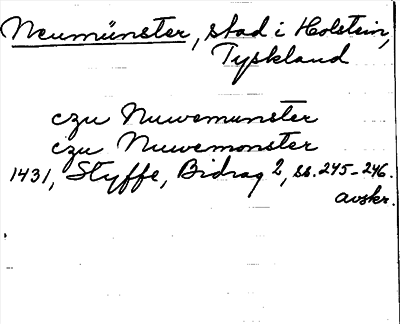 Neumünster, stad i Holstein,
Tyskland
czu Nuwemunster
czu Nuwemonster
1431, Styffe, Bidrag 2, ss. 245-246.
avskr.